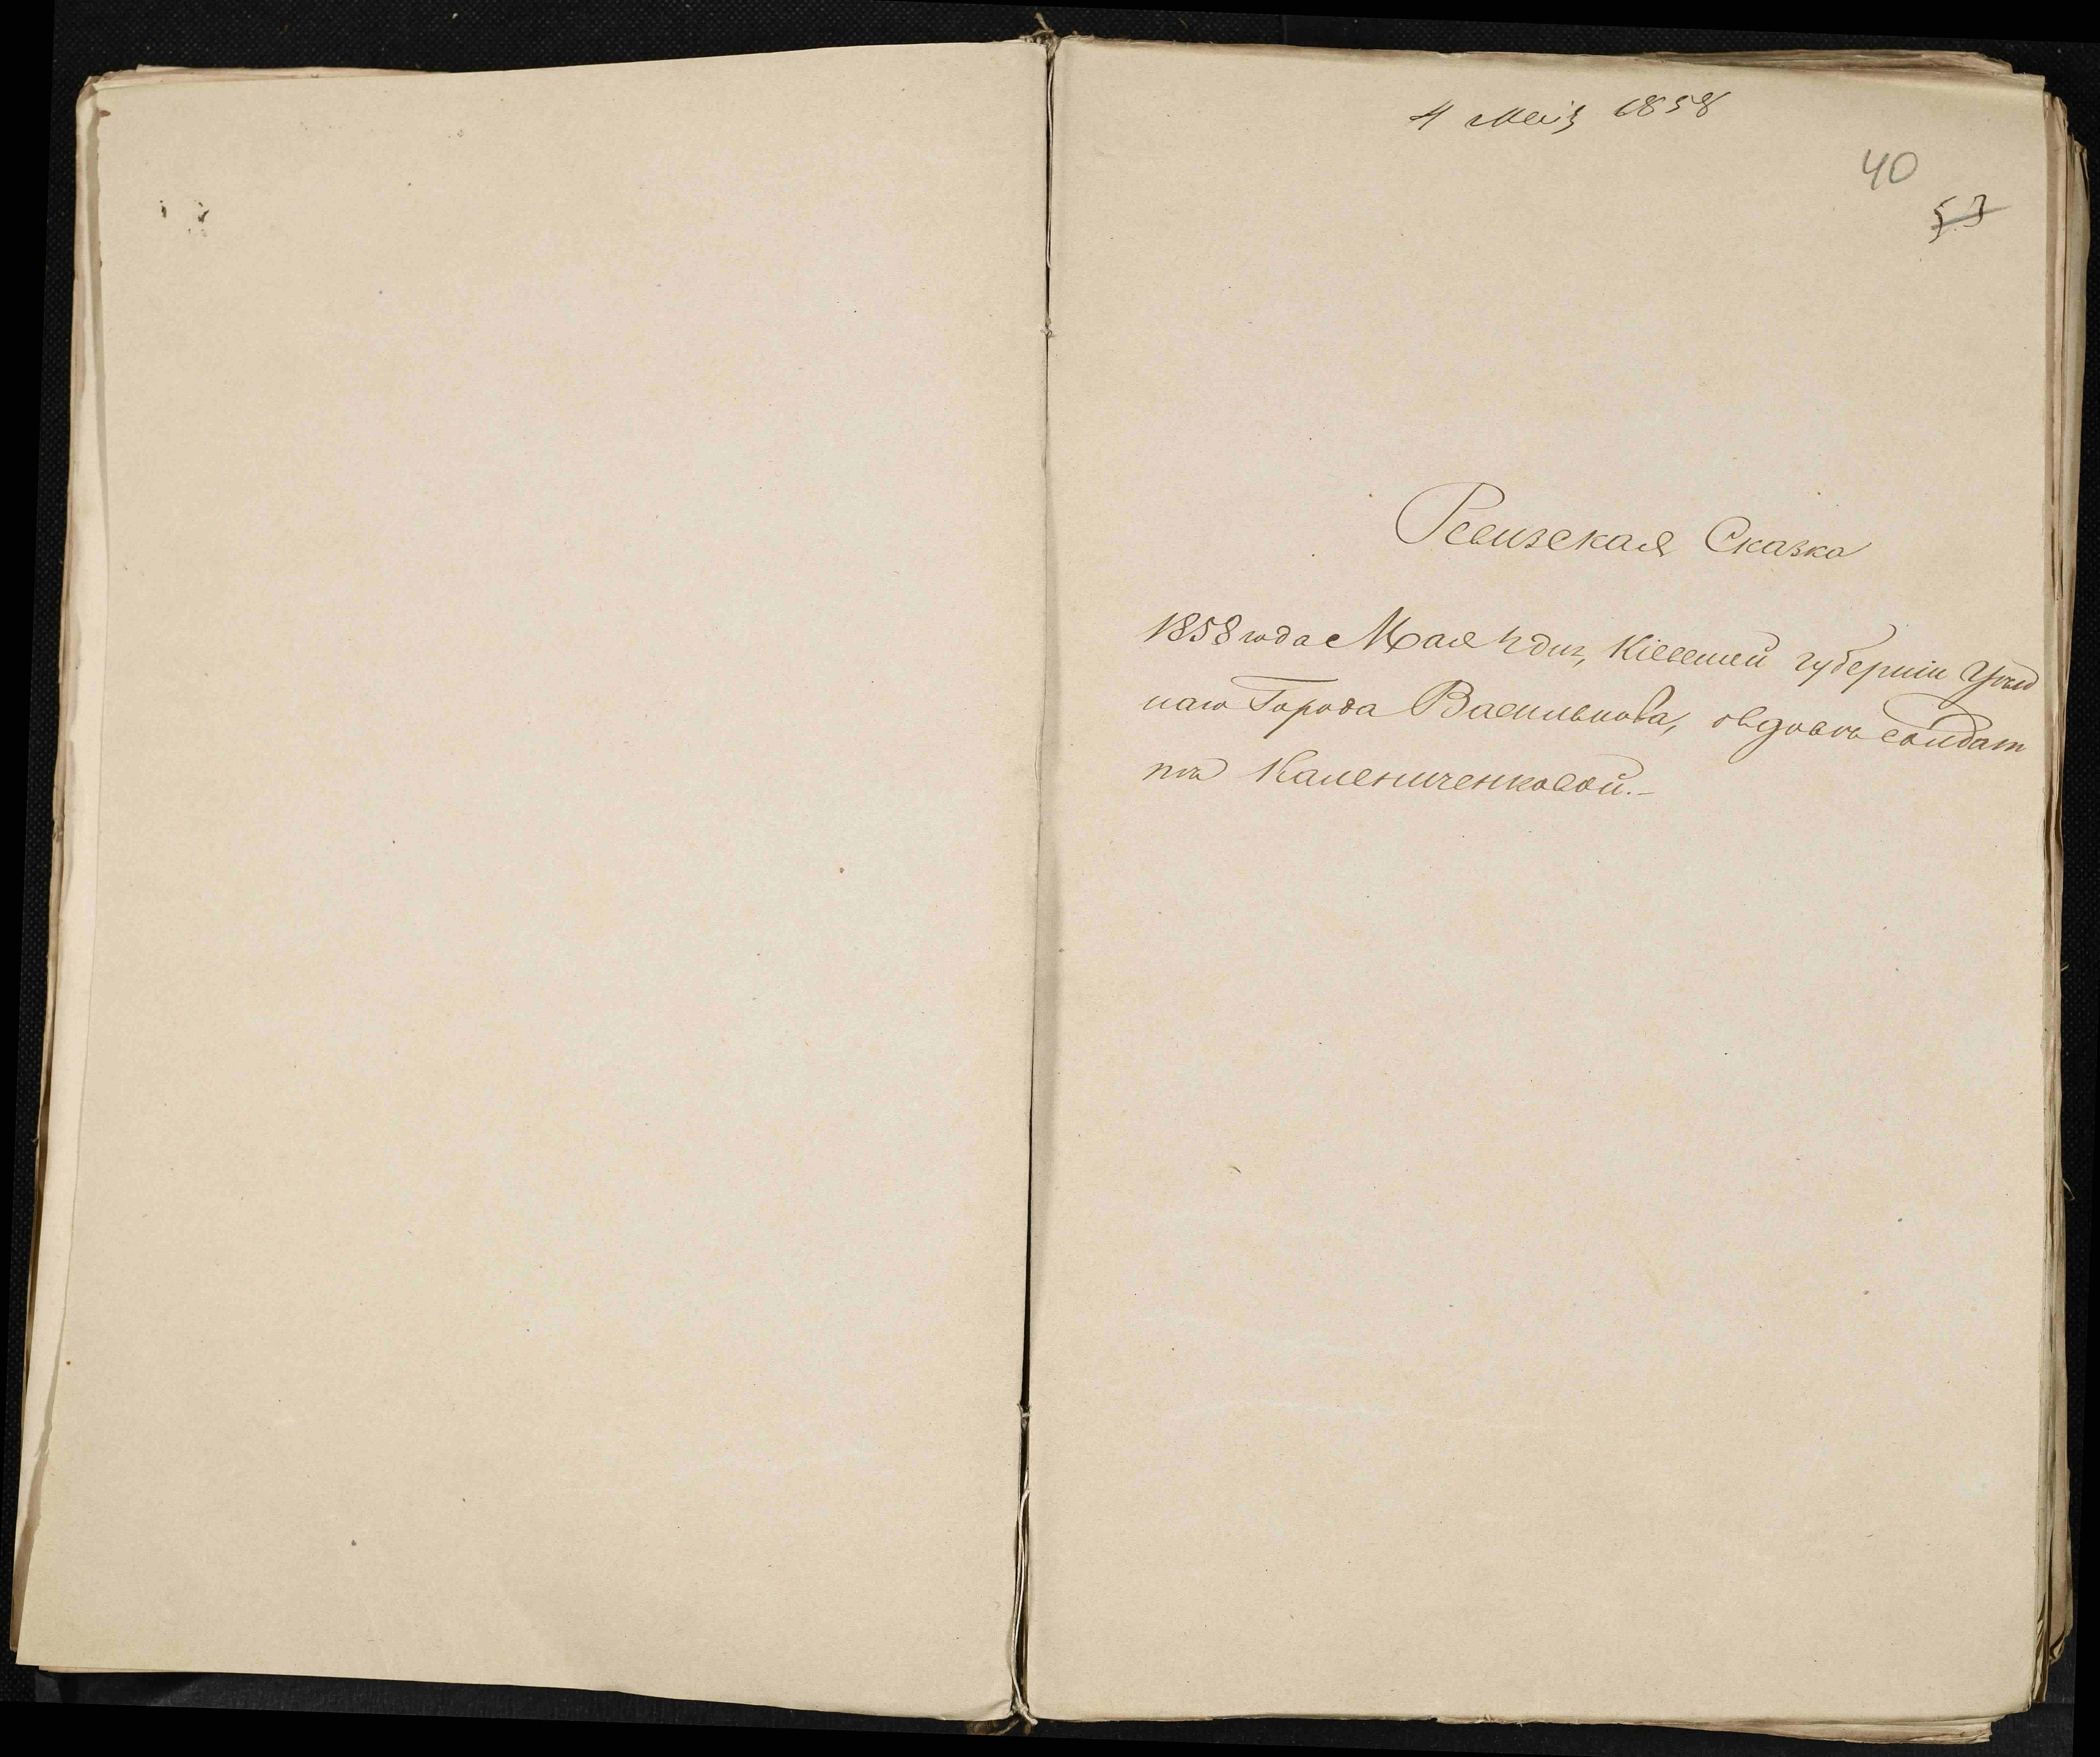 4 Мая 1858
40
53
Ревизская Сказка
1858 года Мая 4 дня, Кіевской губерніи Уѣзд
наго Города Василькова, о вдовѣ солдат
кѣ Калениченковой.-